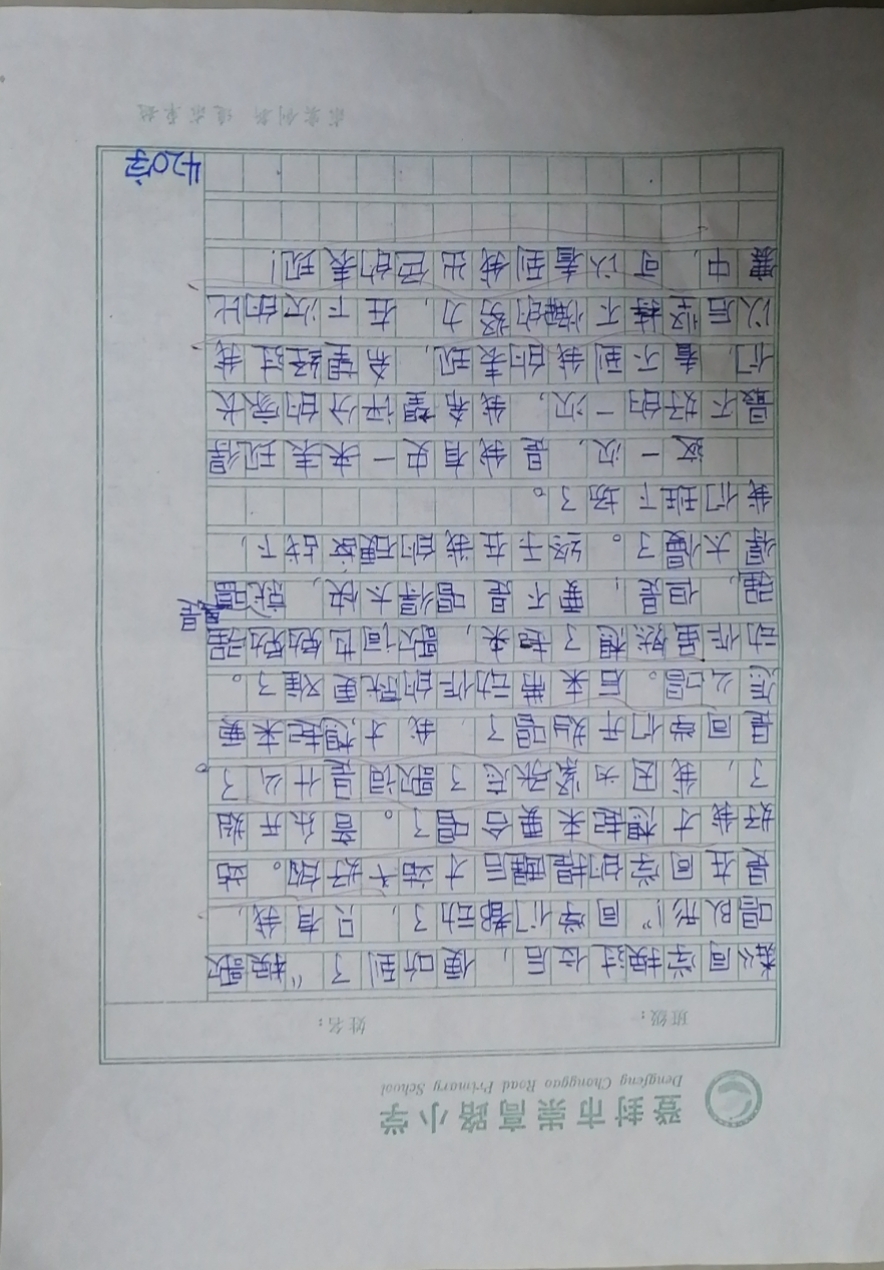 登封市崇高路小学
Dengfeng Chonggao Road Primary School
班级： 姓名：
同学换过位后，便听到了“换歌
唱队形！”同学们都动了，只有我，
是在同学的提醒后才站好的。站
好我才想起来要合唱了。音乐开始
了，我因为紧张忘了歌词是什么了。
是同学们开始唱了，我才想起来要
怎么唱。后来带动作的就更难了。
动作虽然想了起来，歌词也勉勉强
强，但是，要不是唱得太快，就是唱
得太慢了。终于在我的硬撑战下，
我们班下场了。
这一次，是我有史一来表现得
最不好的一次，我希望评分的家长
们，看不到我的表现，希望经过我
以后坚持不懈的努力，在下次的比
赛中，可以看到我出色的表现！
420字